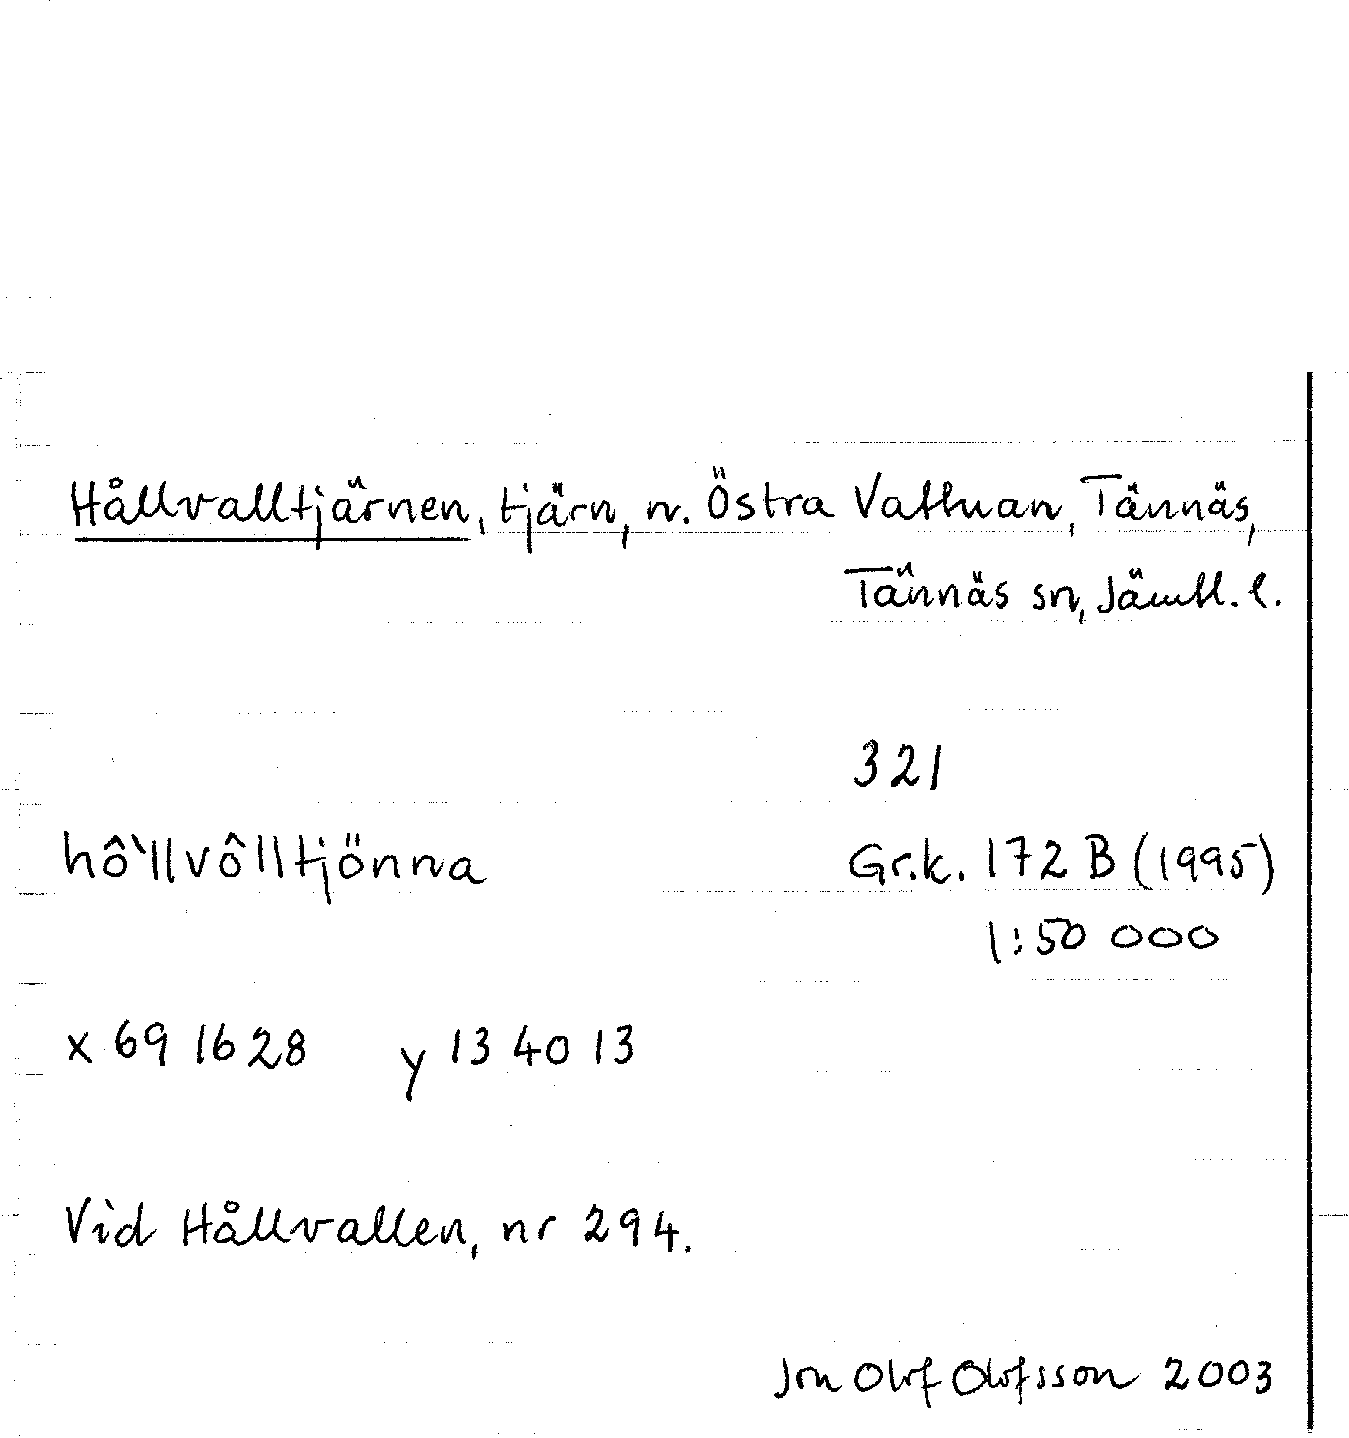 Hållvalltjärnen, tjärn, n. Östra Vattnan, Tännäs,
Tännäs sn, Jämtl. l.
321
hô`llvôlltjönna Gr.k. 172 B (1995)
1:50 000
x 69 16 28 y 13 40 13
Vid Hållvallen, nr 294.
Jon Olof Olofsson 2003